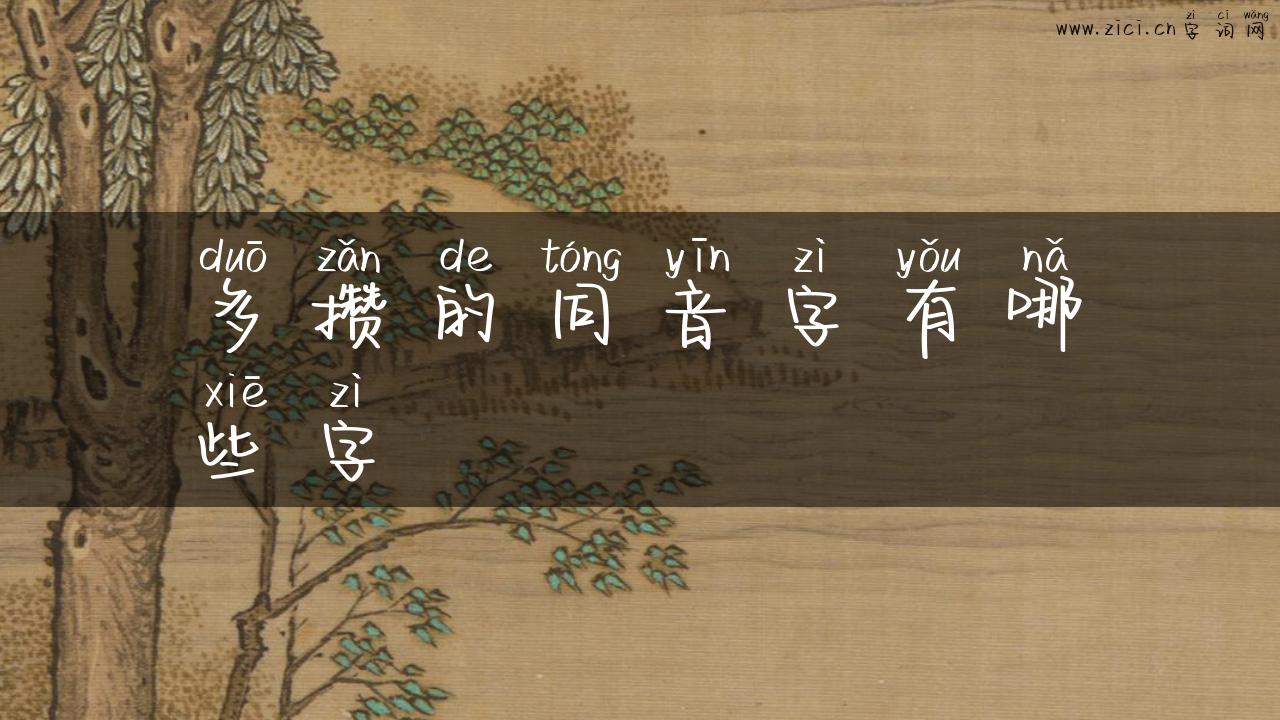 zì cí wǎng
www.zici.cn 字词网
duō zǎn de tóng yīn zì yǒu nǎ
多攒的同音字有哪
xiē zì
些字